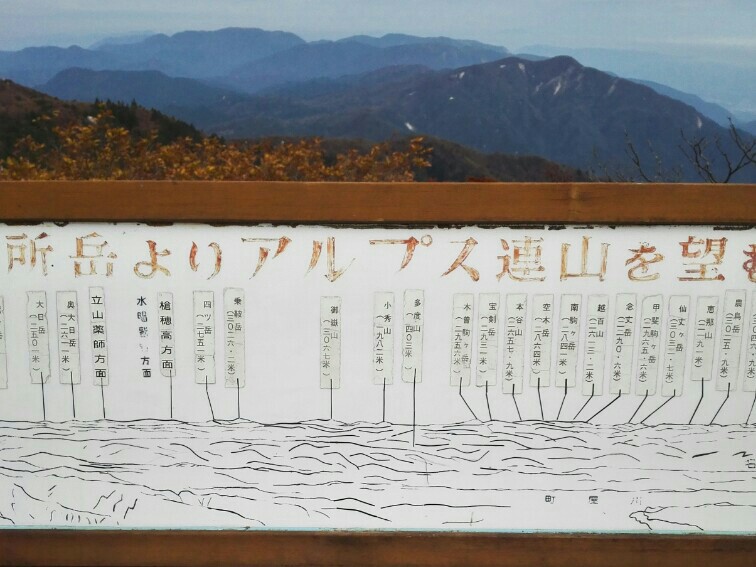 所岳よりアルプス連山を望む
大日岳(二五〇一米)
奥大日岳(二六一一米)
立山薬師方面
方面
槍穂高方面
四ツ岳
乗鞍岳(三〇二六・二米)
御嶽山(三〇六七米)
小秀山(一九八二米)
多度山(四〇三米)
木曽駒ヶ岳(二九五六米)
宝剣岳(二九三一米)
本谷山(二六五七・九米)
空木岳(二八六四米)
南駒ヶ岳(二八四一米)
越百山(二六一三・二米)
念丈岳(二二九〇・九米)
甲斐駒ヶ岳(二九六六米)
仙丈ヶ岳(三〇三三・七米)
恵那山(二一九一米)
農鳥岳(三〇二五・九米)
町屋川